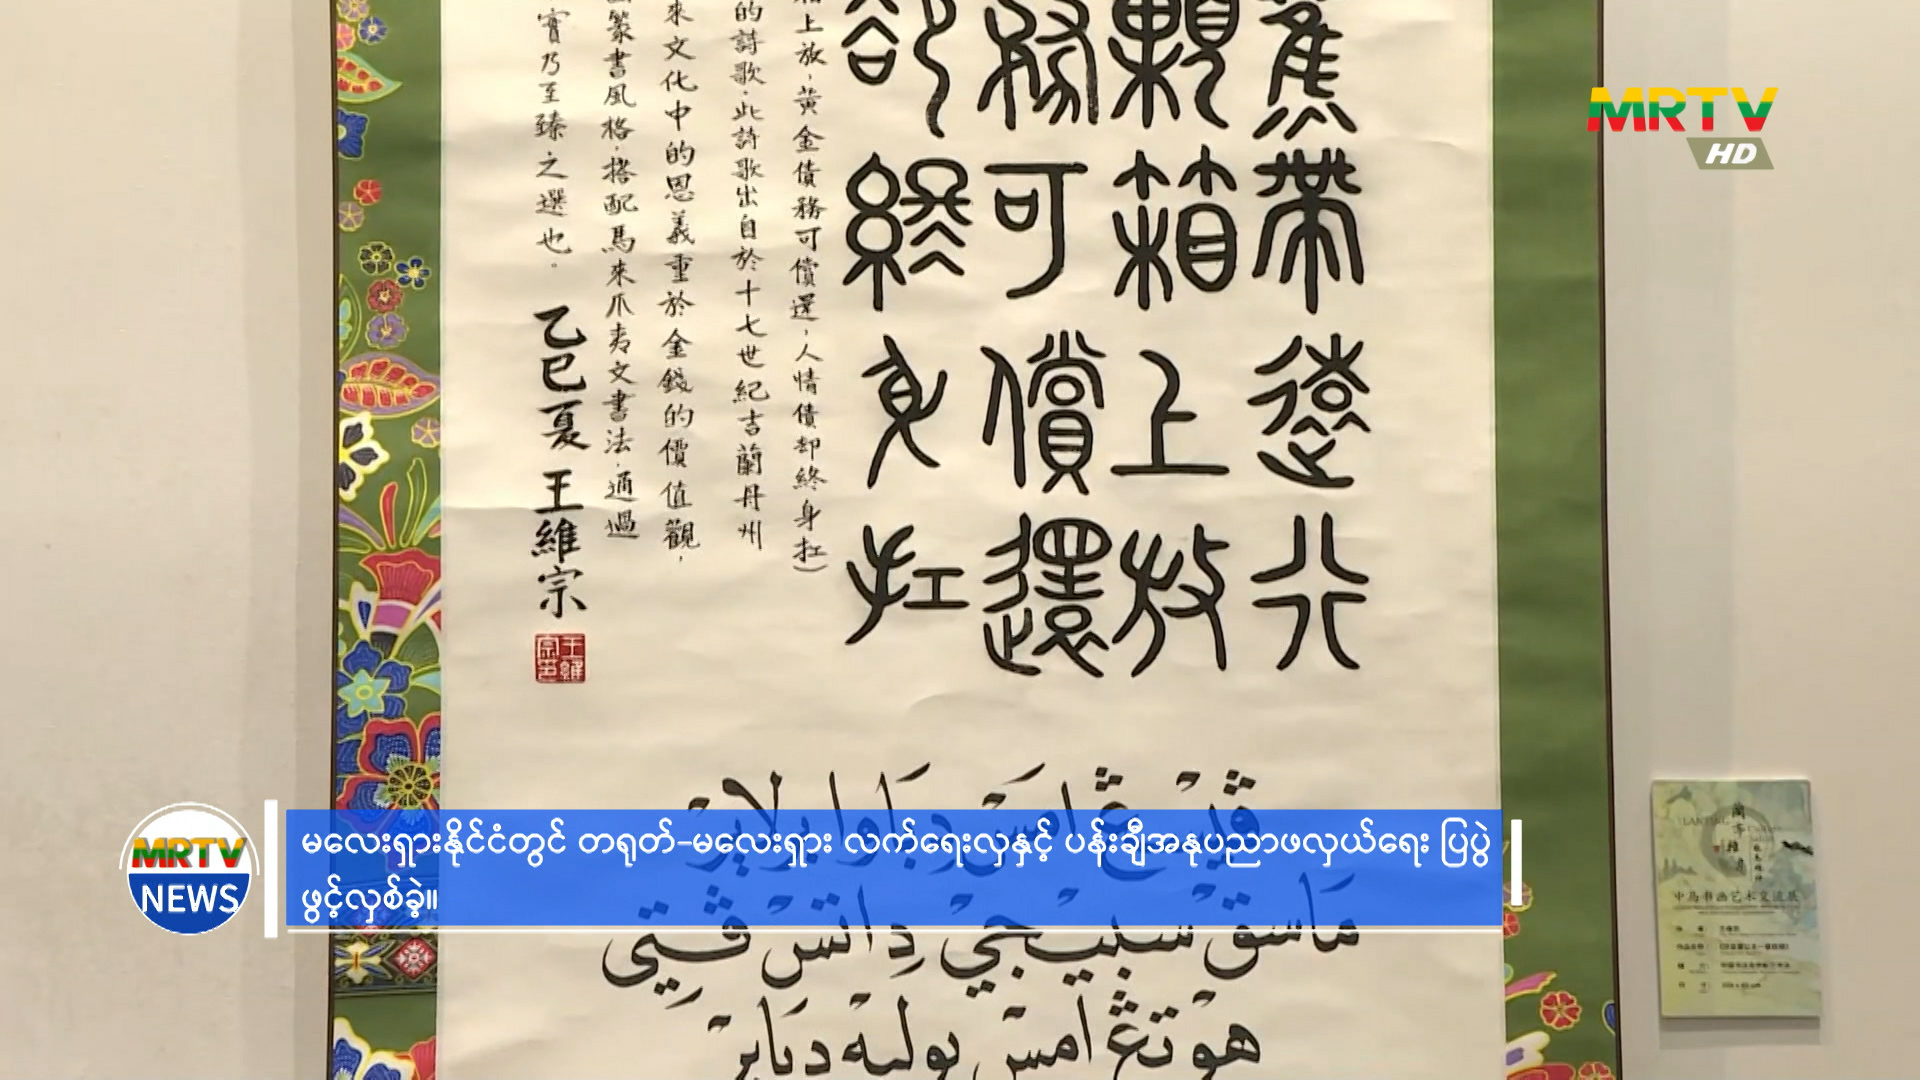 MRTV
HD
舊帶遊行
顆箱上放
務可償還
卻終身扛
箱上放,黃金債務可償還,人情債却終身扛)
的詩歌,此詩歌出自於十七世紀吉蘭丹州
來文化中的恩義重於金錢的價值觀,
篆書風格,搭配馬來爪夷文書法,通過
實乃至臻之選也。
乙巳夏 王維宗
ڤيسڠ امس دباوا بلاير
ماسق سبيجي داتس ڤتي
هوتڠ امس بوليه دباير
MRTV
NEWS
မလေးရှားနိုင်ငံတွင် တရုတ်-မလေးရှား လက်ရေးလှနှင့် ပန်းချီအနုပညာဖလှယ်ရေး ပြပွဲ
ဖွင့်လှစ်ခဲ့။
LANTING
中马书画艺术交流展